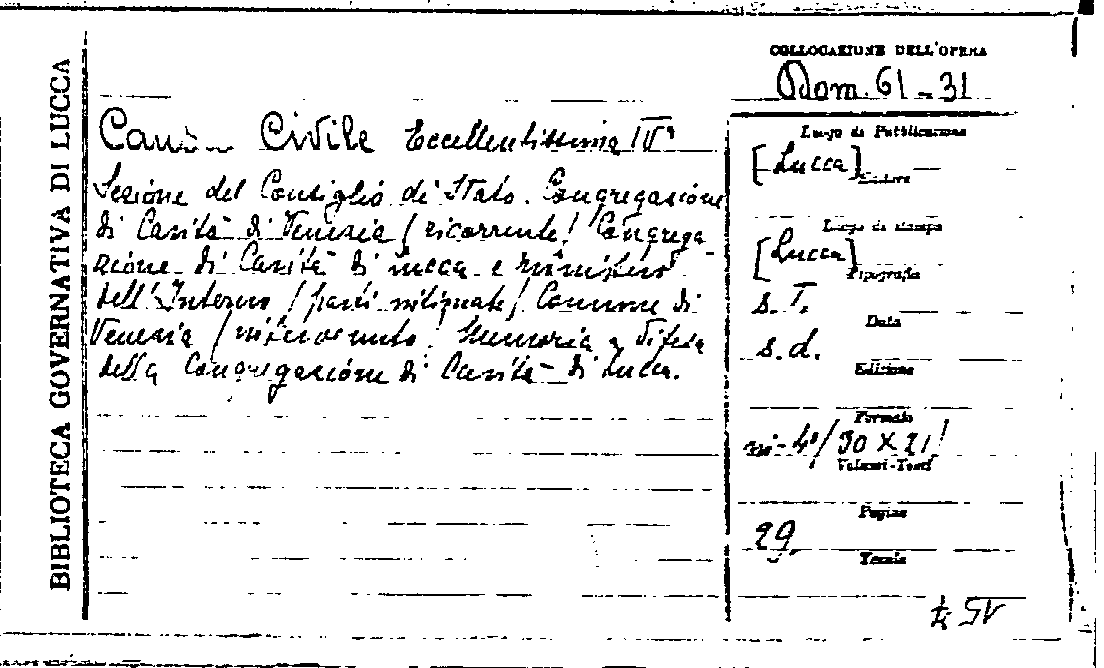 BIBLIOTECA GOVERNATIVA DI LUCCA
COLLOCAZIONE DELL'OPERA
Dom. 61-31
Causa Civile Eccellentissima IVª
Sezione del Consiglio di Stato. Congregazione
di Carità di Venezia / ricorrente / Congrega
zione di Carità di Lucca e Ministero
dell'Interno / parti intimate / Comune di
Venezia / intervenuto / Memoria a difesa
della Congregazione di Carità di Lucca.
Luogo di Pubblicazione
[Lucca]
Editore
Luogo di stampa
[Lucca]
Tipografia
s. T.
Data
s. d.
Edizione
Formato
in-4º / 30 x 21 /
Volumi-Tomi
Pagine
29.